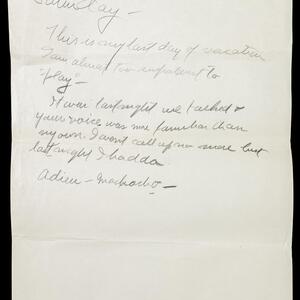 Saturday —
This is my last day of vacation
I am almost too impatient to
"play" —
It was last night we talked &
your voice was more familiar than
my own. I won't call up no more but
last night I hadda.
Adieu —